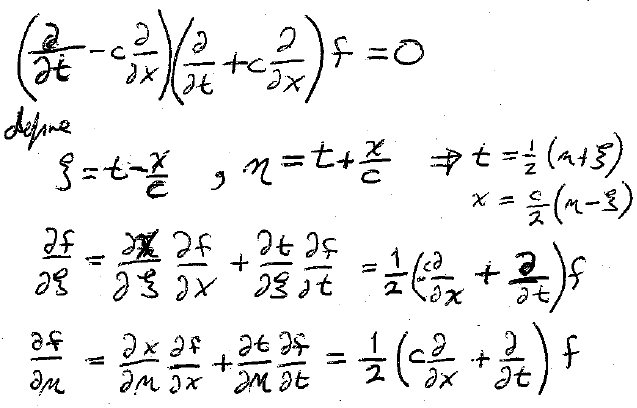 (∂/∂t - c ∂/∂x)(∂/∂t + c ∂/∂x) f = 0
define
ξ = t - x/c , η = t + x/c ⇒ t = 1/2 (η + ξ)
x = c/2 (η - ξ)
∂f/∂ξ = ∂x/∂ξ ∂f/∂x + ∂t/∂ξ ∂f/∂t = 1/2 (-c∂/∂x + ∂/∂t) f
∂f/∂η = ∂x/∂η ∂f/∂x + ∂t/∂η ∂f/∂t = 1/2 (c∂/∂x + ∂/∂t) f